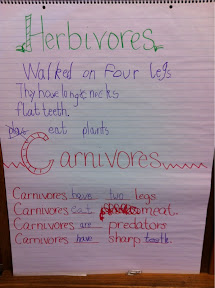 Herbivores
Walked on four legs
They have long necks
flat teeth.
eat plants
Carnivores
Carnivores have two legs
Carnivores eat meat.
Carnivores are predators
Carnivores have sharp teeth.